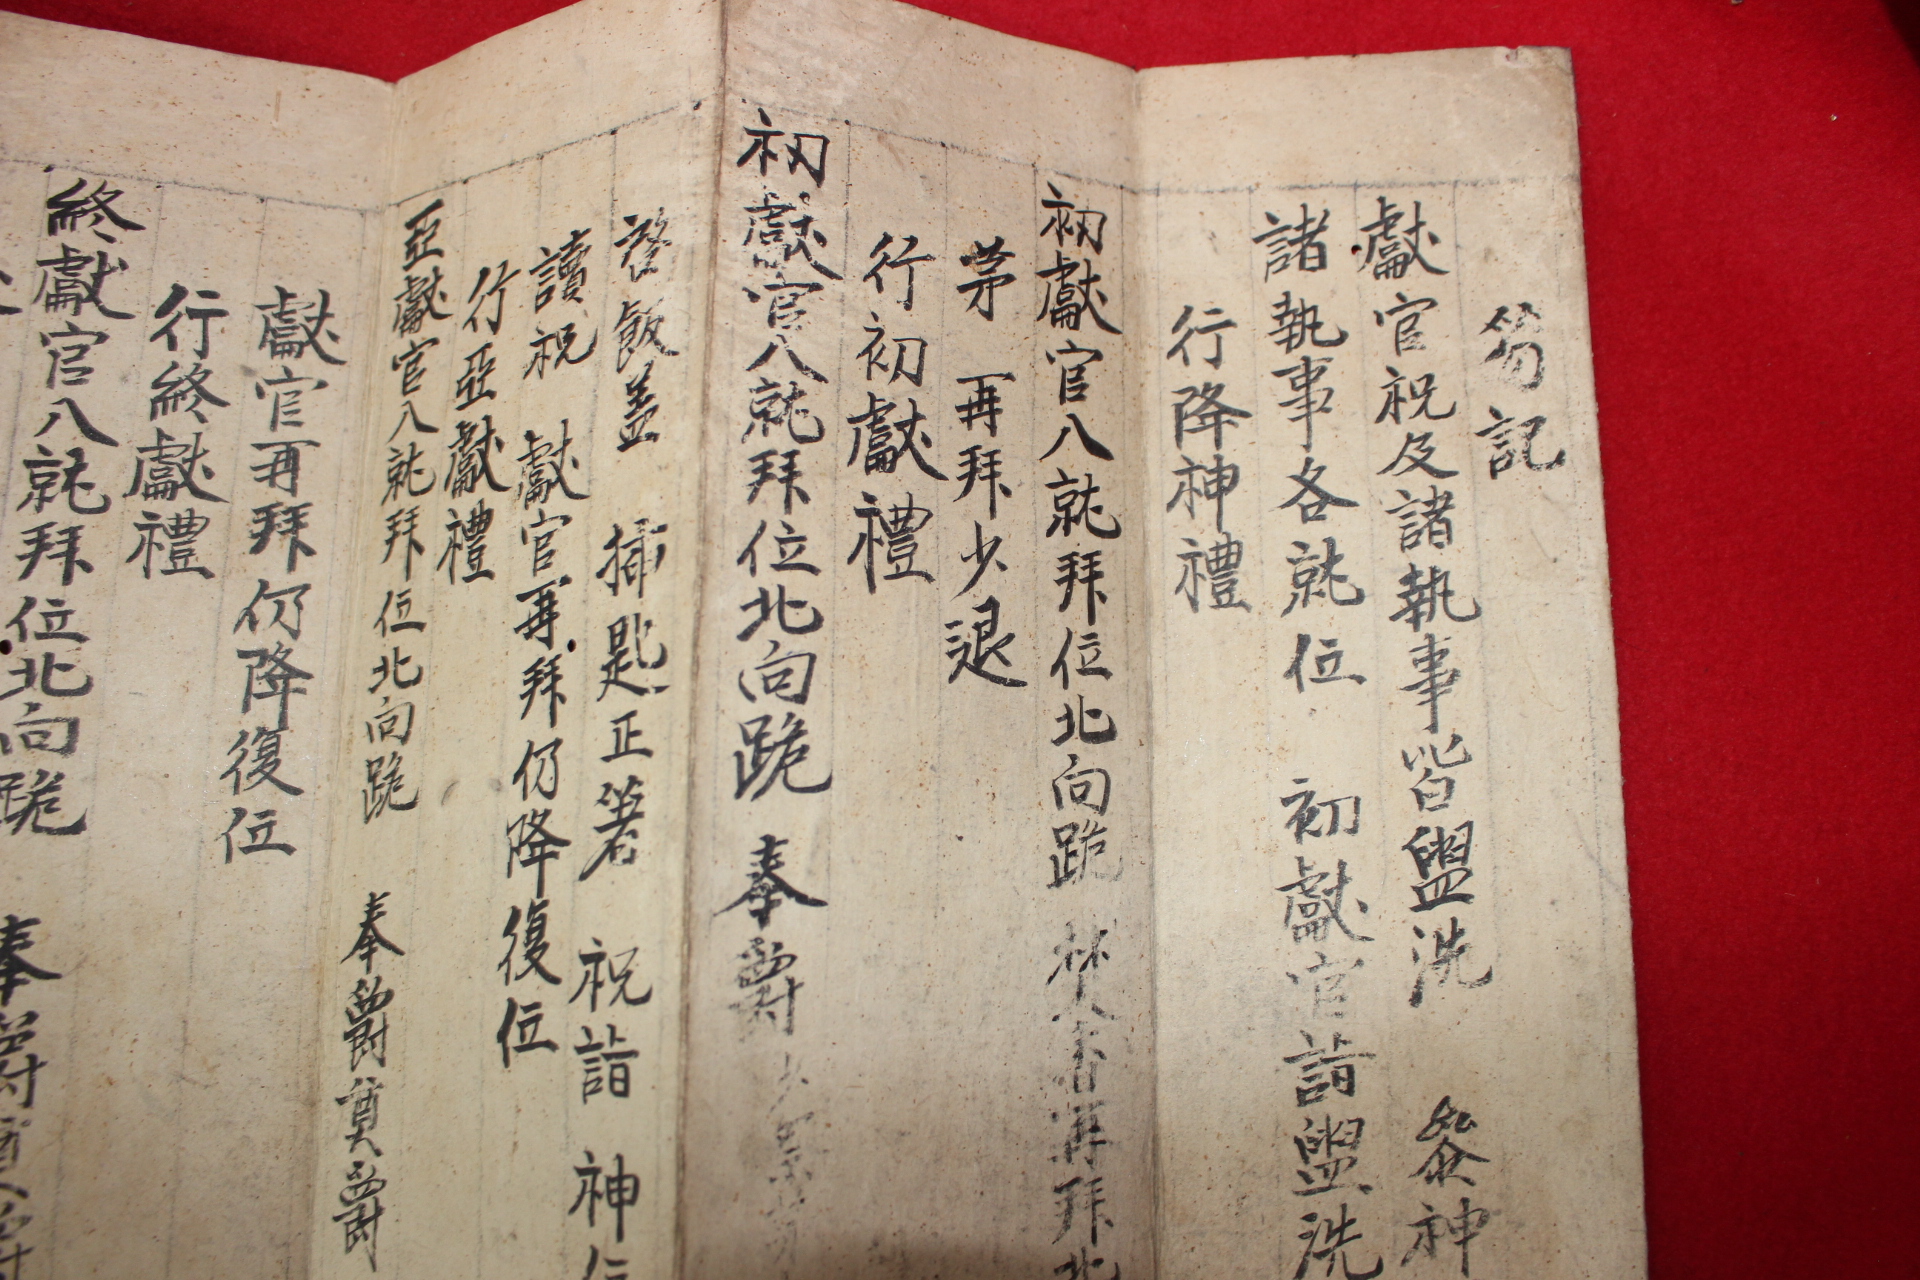 笏記
獻官祝及諸執事皆盥洗 叅神
諸執事各就位 初獻官詣盥洗
行降神禮
初獻官入就拜位北向跪 焚香再拜北
茅 再拜少退
行初獻禮
初獻官入就拜位北向跪 奉爵
啓飯盖 揷匙正箸 祝詣 神位
讀祝 獻官再拜仍降復位
行亞獻禮
亞獻官入就拜位北向跪 奉爵奠爵
獻官再拜仍降復位
行終獻禮
終獻官入就拜位北向跪 奉爵奠爵